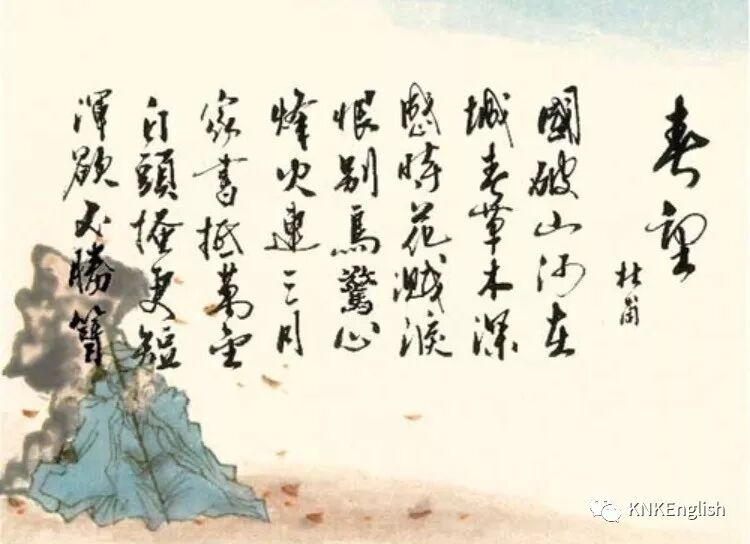 春望
杜甫
國破山河在
城春草木深
感時花濺淚
恨別鳥驚心
烽火連三月
家書抵萬金
白頭搔更短
渾欲不勝簪
KNKEnglish